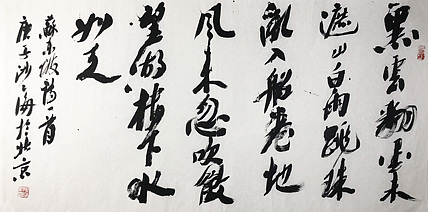 黑雲翻墨未
遮山白雨跳珠
亂入船卷地
風来忽吹散
望湖樓下水
如天
蘇東坡詩一首
庚子沙海於北京